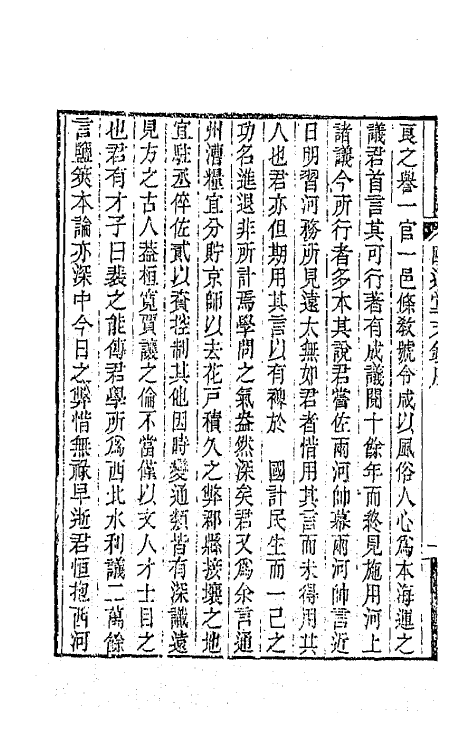 良之譽一官一邑條敎號令咸以風俗人心爲本海運之
議君首言其可行著有成議閱十餘年而終見施用河上
諸議今所行者多本其說君嘗佐兩河帥幕兩河帥言近
日明習河務所見遠大無如君者惜用其言而未得用其
人也君亦但期用其言以有裨於　國計民生而一己之
功名進退非所計焉學問之氣盎然深矣君又爲余言通
州漕糧宜分貯京師以去花戶積久之弊郡縣接壤之地
宜駐丞倅佐貳以資控制其他因時變通類皆有深識遠
見方之古人蓋桓寬賈讓之倫不當僅以文人才士目之
也君有才子曰裴之能傳君學所爲西北水利議二萬餘
言鹽筴本論亦深中今日之弊惜無祿早逝君恒抱西河